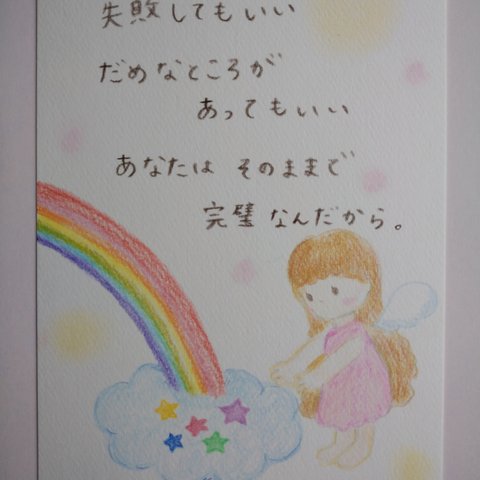 失敗してもいい
だめなところが
あってもいい
あなたは そのままで
完璧なんだから。